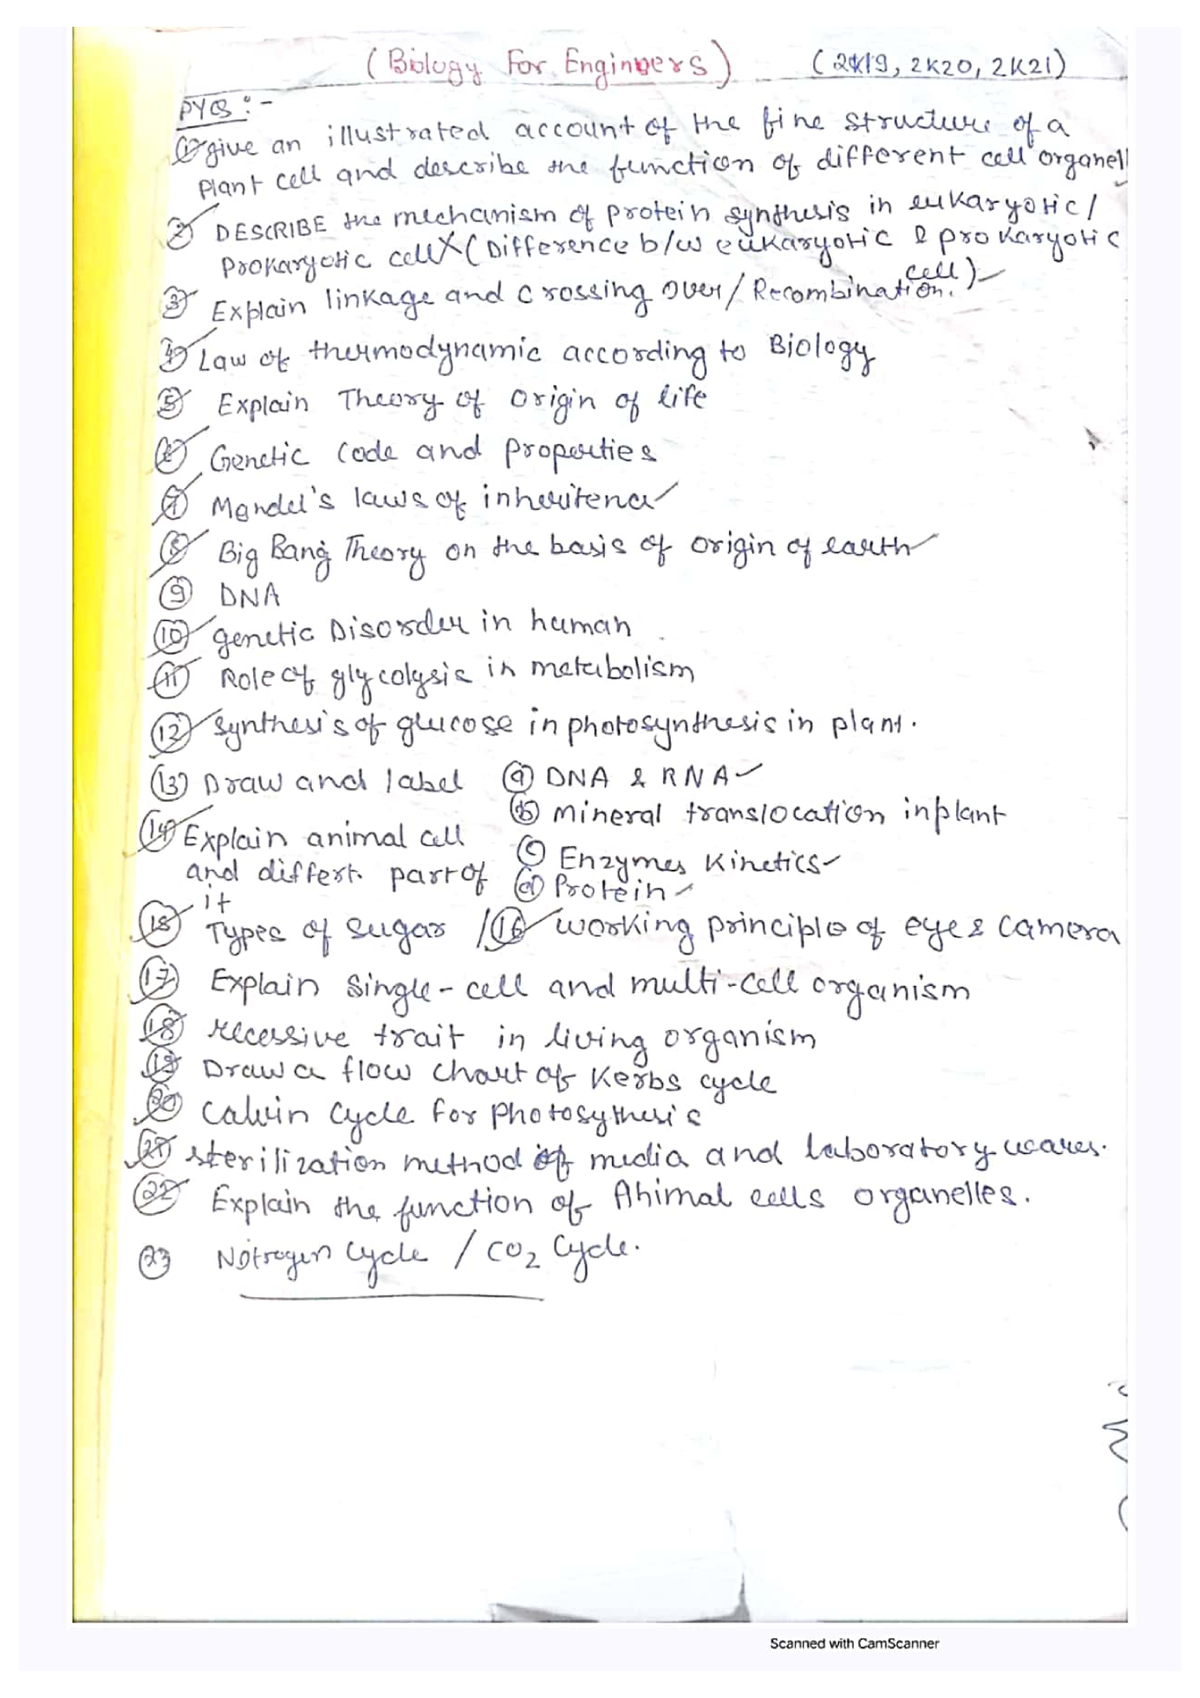 (Biology For Engineers) (2K19, 2K20, 2K21)
PYQS :-
① give an illustrated account of the fine structure of a
Plant cell and describe the function of different cell organell
② DESCRIBE the mechanism of protein synthesis in eukaryotic /
Prokaryotic cell X (Difference b/w eukaryotic & prokaryotic
cell)
③ Explain linkage and crossing over / Recombination.
④ Law of thermodynamic according to Biology
⑤ Explain Theory of origin of life
⑥ Genetic code and properties
⑦ Mendel's laws of inheritence
⑧ Big Bang Theory on the basis of origin of earth
⑨ DNA
⑩ genetic Disorder in human
⑪ Role of glycolysis in metabolism
⑫ Synthesis of glucose in photosynthesis in plant.
⑬ Draw and label ⓐ DNA & RNA
ⓑ Mineral translocation in plant
⑭ Explain animal cell
ⓒ Enzymes Kinetics
and differt. part of
ⓓ Protein
it
⑮ Types of sugar / ⑯ working principle of eye & camera
⑰ Explain Single-cell and multi-cell organism
⑱ recessive trait in living organism
⑲ Draw a flow chart of Kerbs cycle
⑳ Calvin Cycle for Photosythesis
㉑ sterilization method of media and laboratory wares.
㉒ Explain the function of Animal cells organelles.
㉓ Nitrogen Cycle / CO2 Cycle.
Scanned with CamScanner